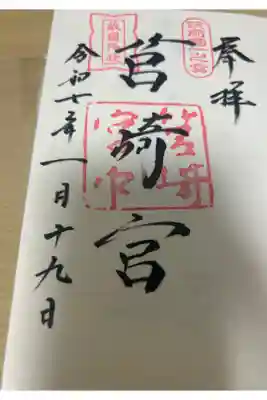 奉拝
筑前國一之宮
筥崎宮
筥崎宮印
敵國降伏
令和七年一月十九日